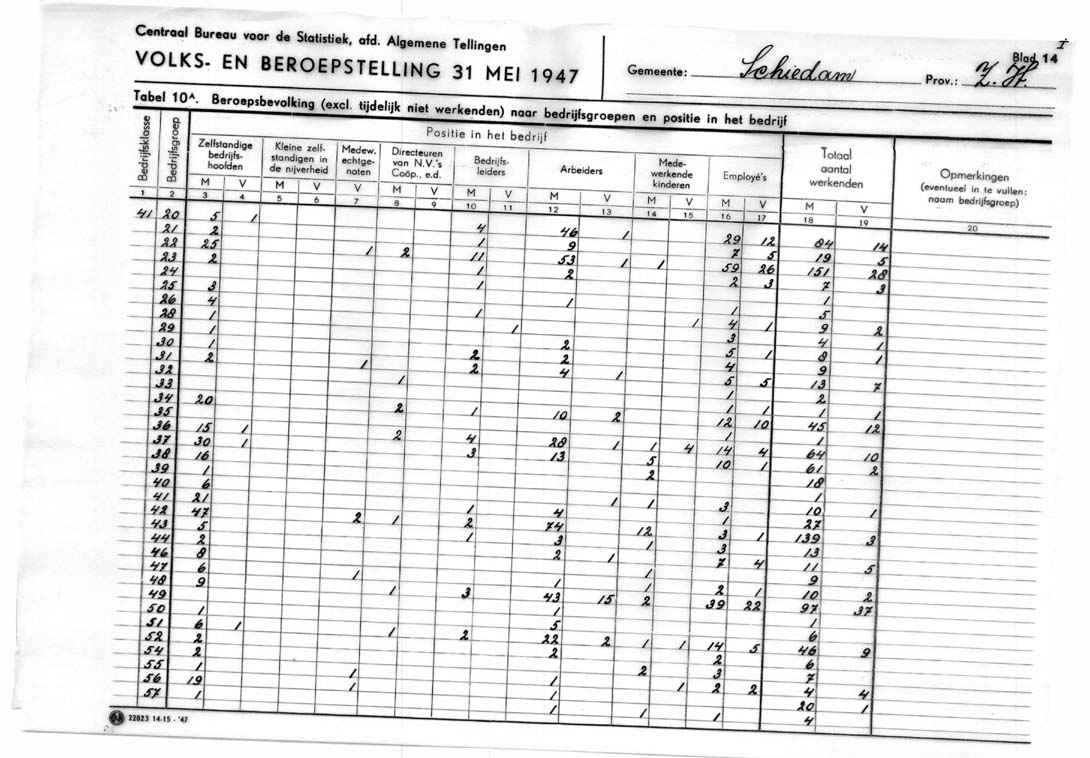 Centraal Bureau voor de Statistiek, afd. Algemene Tellingen
VOLKS- EN BEROEPSTELLING 31 MEI 1947
Gemeente: Schiedam Prov.: Z. H.
I
Blad 14
Tabel 10A. Beroepsbevolking (excl. tijdelijk niet werkenden) naar bedrijfsgroepen en positie in het bedrijf
Bedrijfsklasse
Bedrijfsgroep
Positie in het bedrijf
Zelfstandige bedrijfs- hoofden
Kleine zelf- standigen in de nijverheid
Medew. echtge- noten
Directeuren van N.V.'s Coöp., e.d.
Bedrijfs- leiders
Arbeiders
Mede- werkende kinderen
Employé's
Totaal aantal werkenden
Opmerkingen (eventueel in te vullen: naam bedrijfsgroep)
M V M V V M V M V M V M V M V M V
1 2 3 4 5 6 7 8 9 10 11 12 13 14 15 16 17 18 19 20
41 20 5 1 4 46 1 29 12 84 14
21 2 1 9 7 5 19 5
22 25 1 2 11 53 1 1 59 26 151 28
23 2 1 2 2 3 7 3
24 1 1
25 3 1 1 5
26 4 1 1 4 1 9 2
28 1 1 3 4 1
29 1 2 5 1 8 1
30 1 2 2 4 9
31 2 1 2 4 1 5 5 13 7
32 1 1 2
33 1 1 1 1
34 20 2 1 10 2 12 10 45 12
35 1 1
36 15 1 2 4 28 1 1 4 14 4 64 10
37 30 1 3 13 5 10 1 61 2
38 16 2 18
39 1 1
40 6 1 1 3 10 1
41 21 1 4 1 27
42 47 2 1 2 74 12 3 1 139 3
43 5 1 3 1 3 13
44 2 2 1 7 4 11 5
46 8 1 9
47 6 1 1 1 2 1 10 2
48 9 1 3 43 15 2 39 22 97 37
49 1 1
50 1 5 6
51 6 1 1 2 22 2 1 1 14 5 46 9
52 2 2 2 6
54 2 2 3 7
55 1 1 1 1 2 2 4 4
56 19 1 1 20 1
57 1 1 1 1 4
22823 14-15-'47